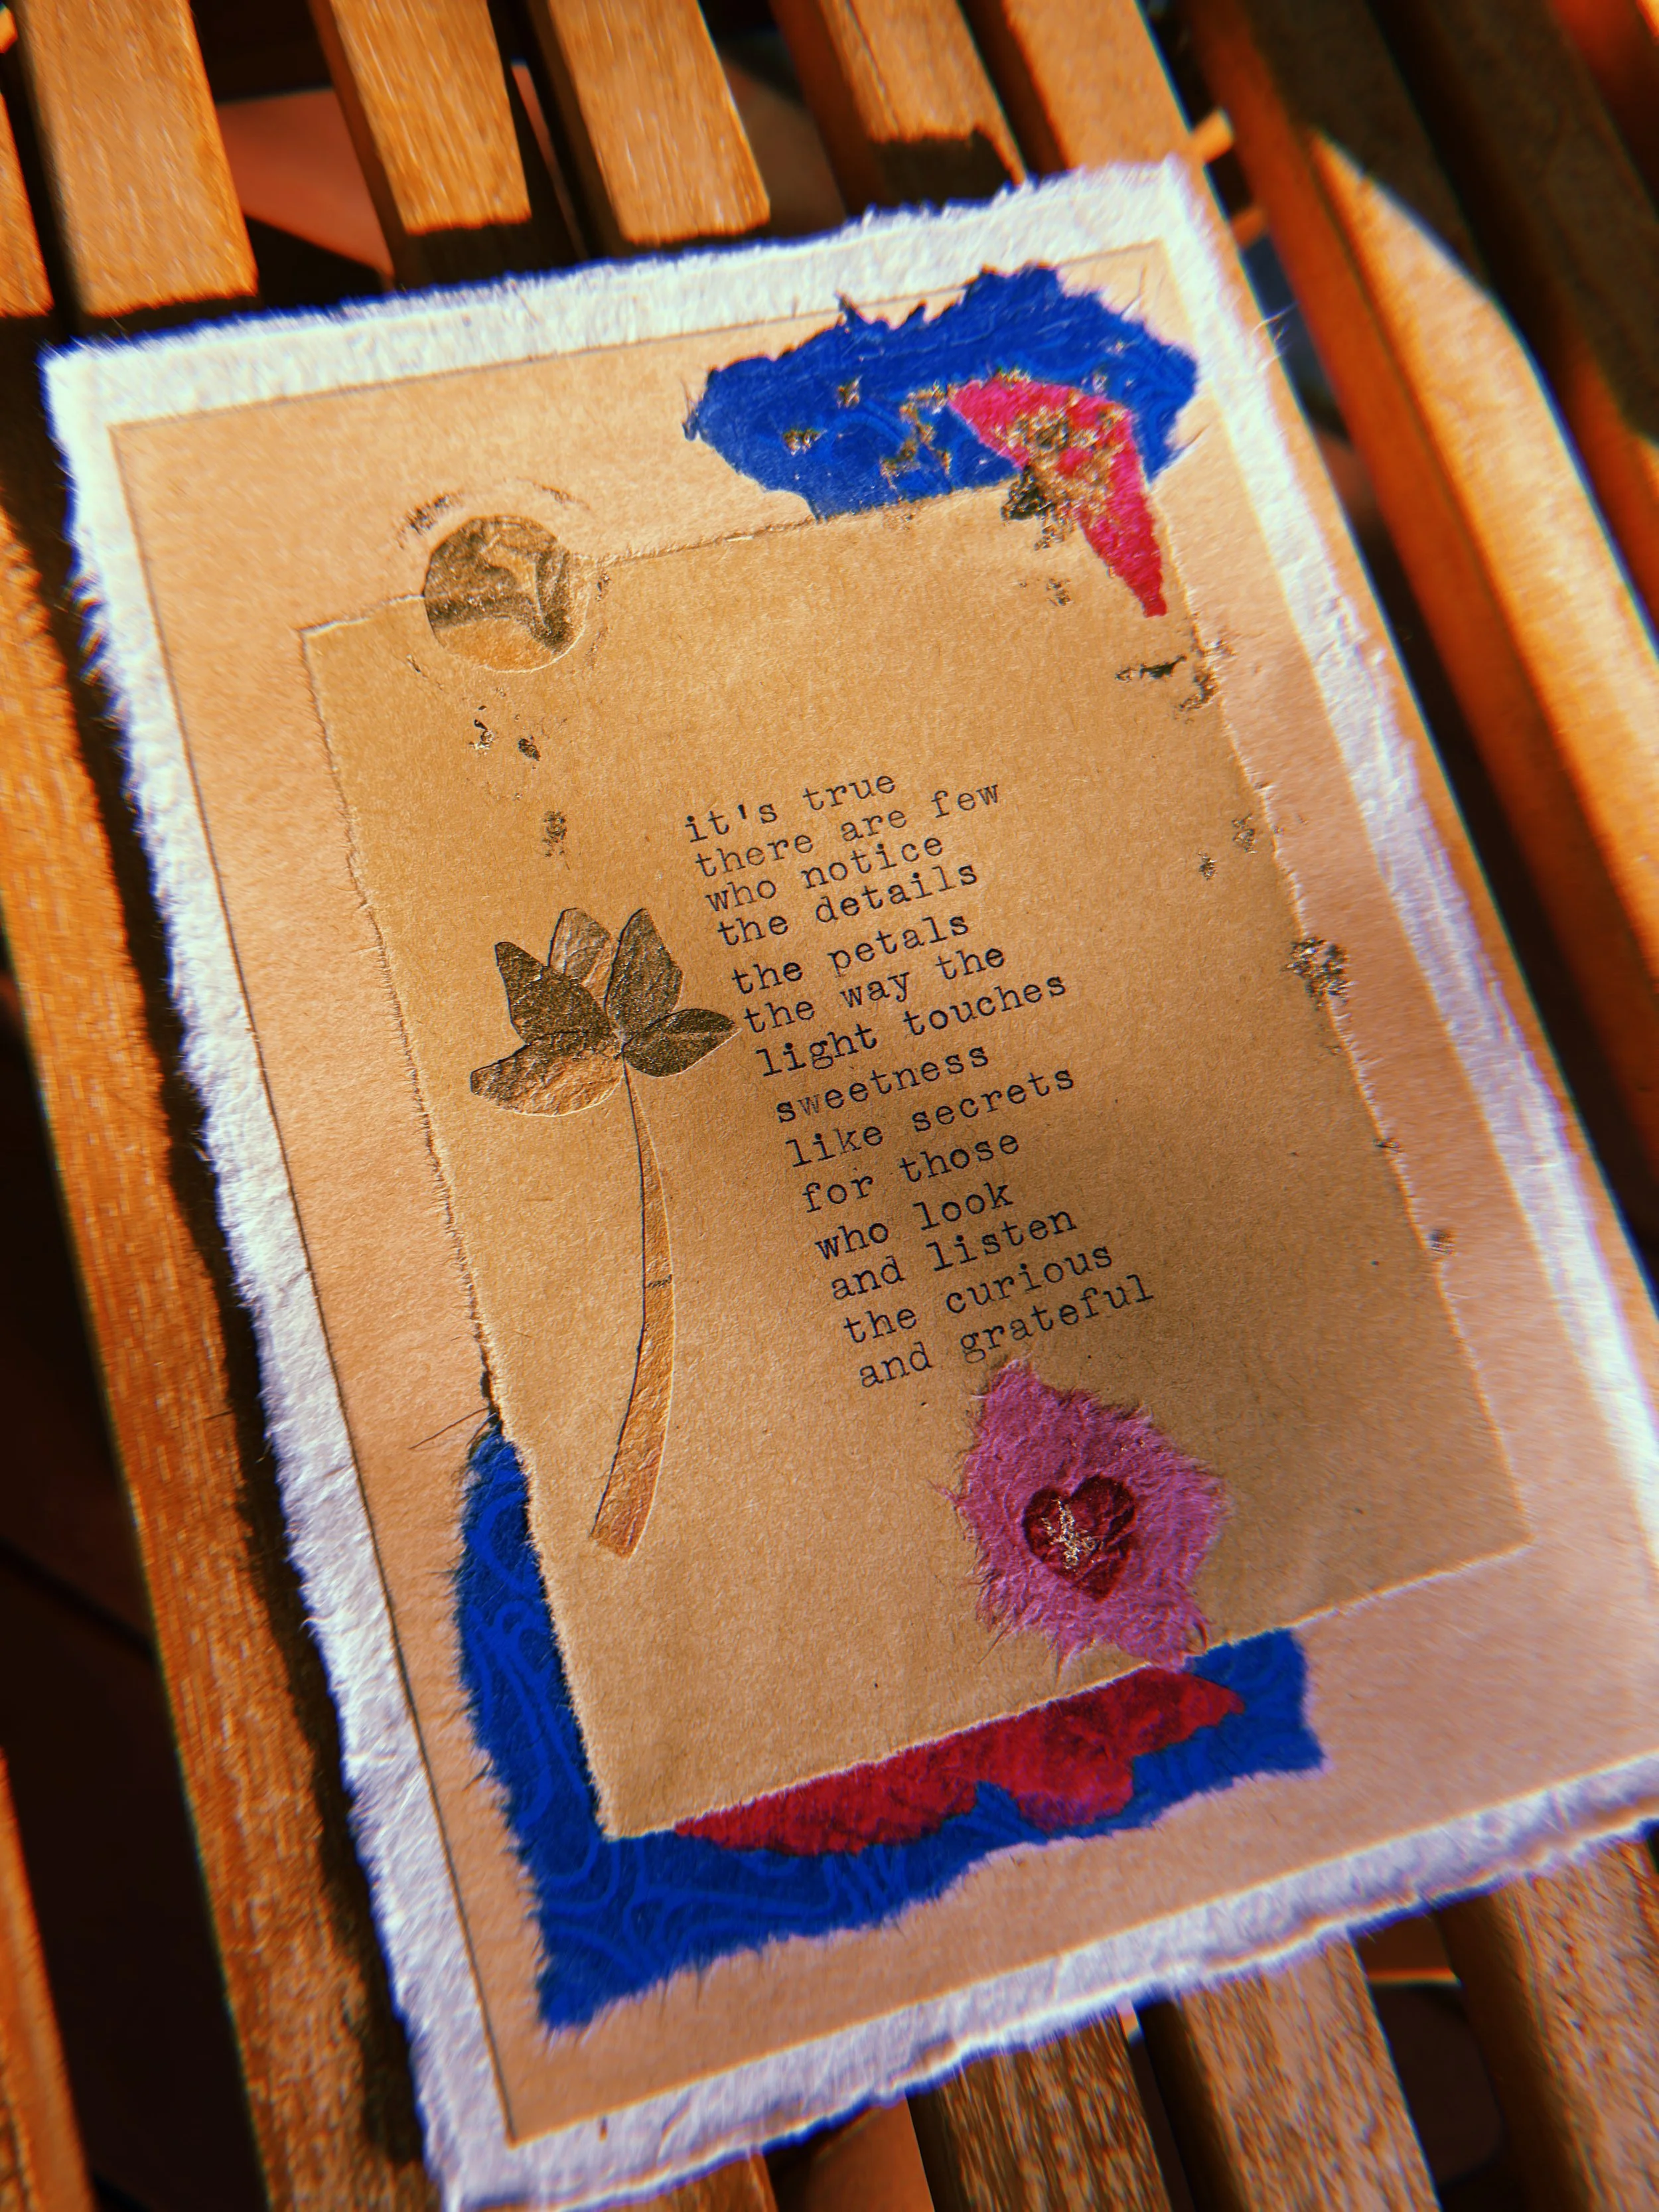 it's true
there are few
who notice
the details
the petals
the way the
light touches
sweetness
like secrets
for those
who look
and listen
the curious
and grateful